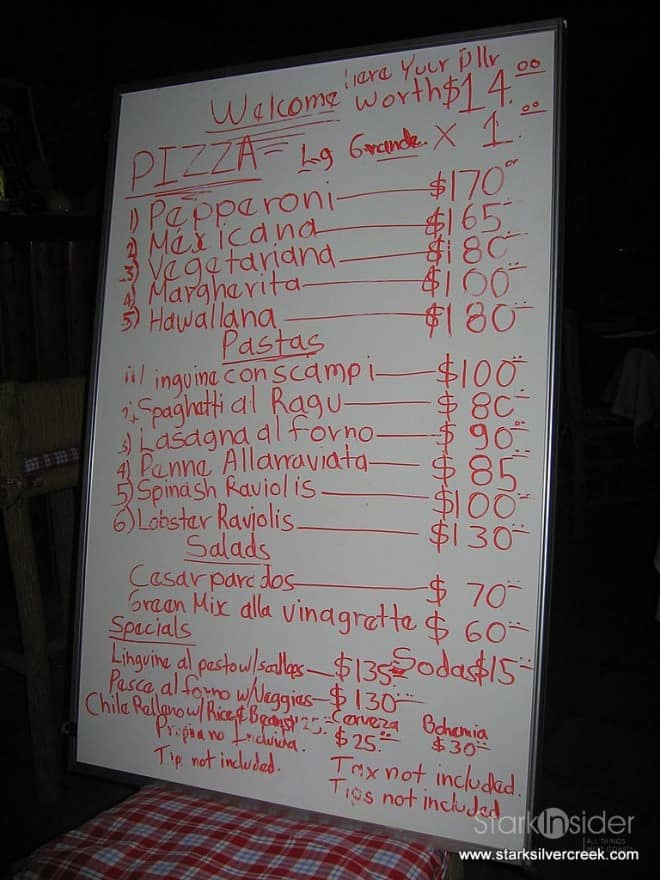 Welcome Here Your Dllr
worth $14.00
PIZZA Lg Grande. X 1.00
1) Pepperoni $170
2) Mexicana $165
3) Vegetariana $180
4) Margherita $100
5) Hawallana $180
Pastas
1) Linguine con scampi $100
2) Spaghetti al Ragu $80
3) Lasagna al forno $90
4) Penne Allarraviata $85
5) Spinash Raviolis $100
6) Lobster Raviolis $130
Salads
Cesar para dos $70
Green Mix alla vinagrette $60
Specials
Linguine al pesto w/ scallops $135 Sodas $15
Pesce al forno w/ Veggies $130
Chile Rellano w/ Rice & Beans $125 Cerveza Bohemia
Propina no Incluida. $25 $30
Tip not included. Tax not included.
Tips not included
StarkInsider
www.starksilvercreek.com